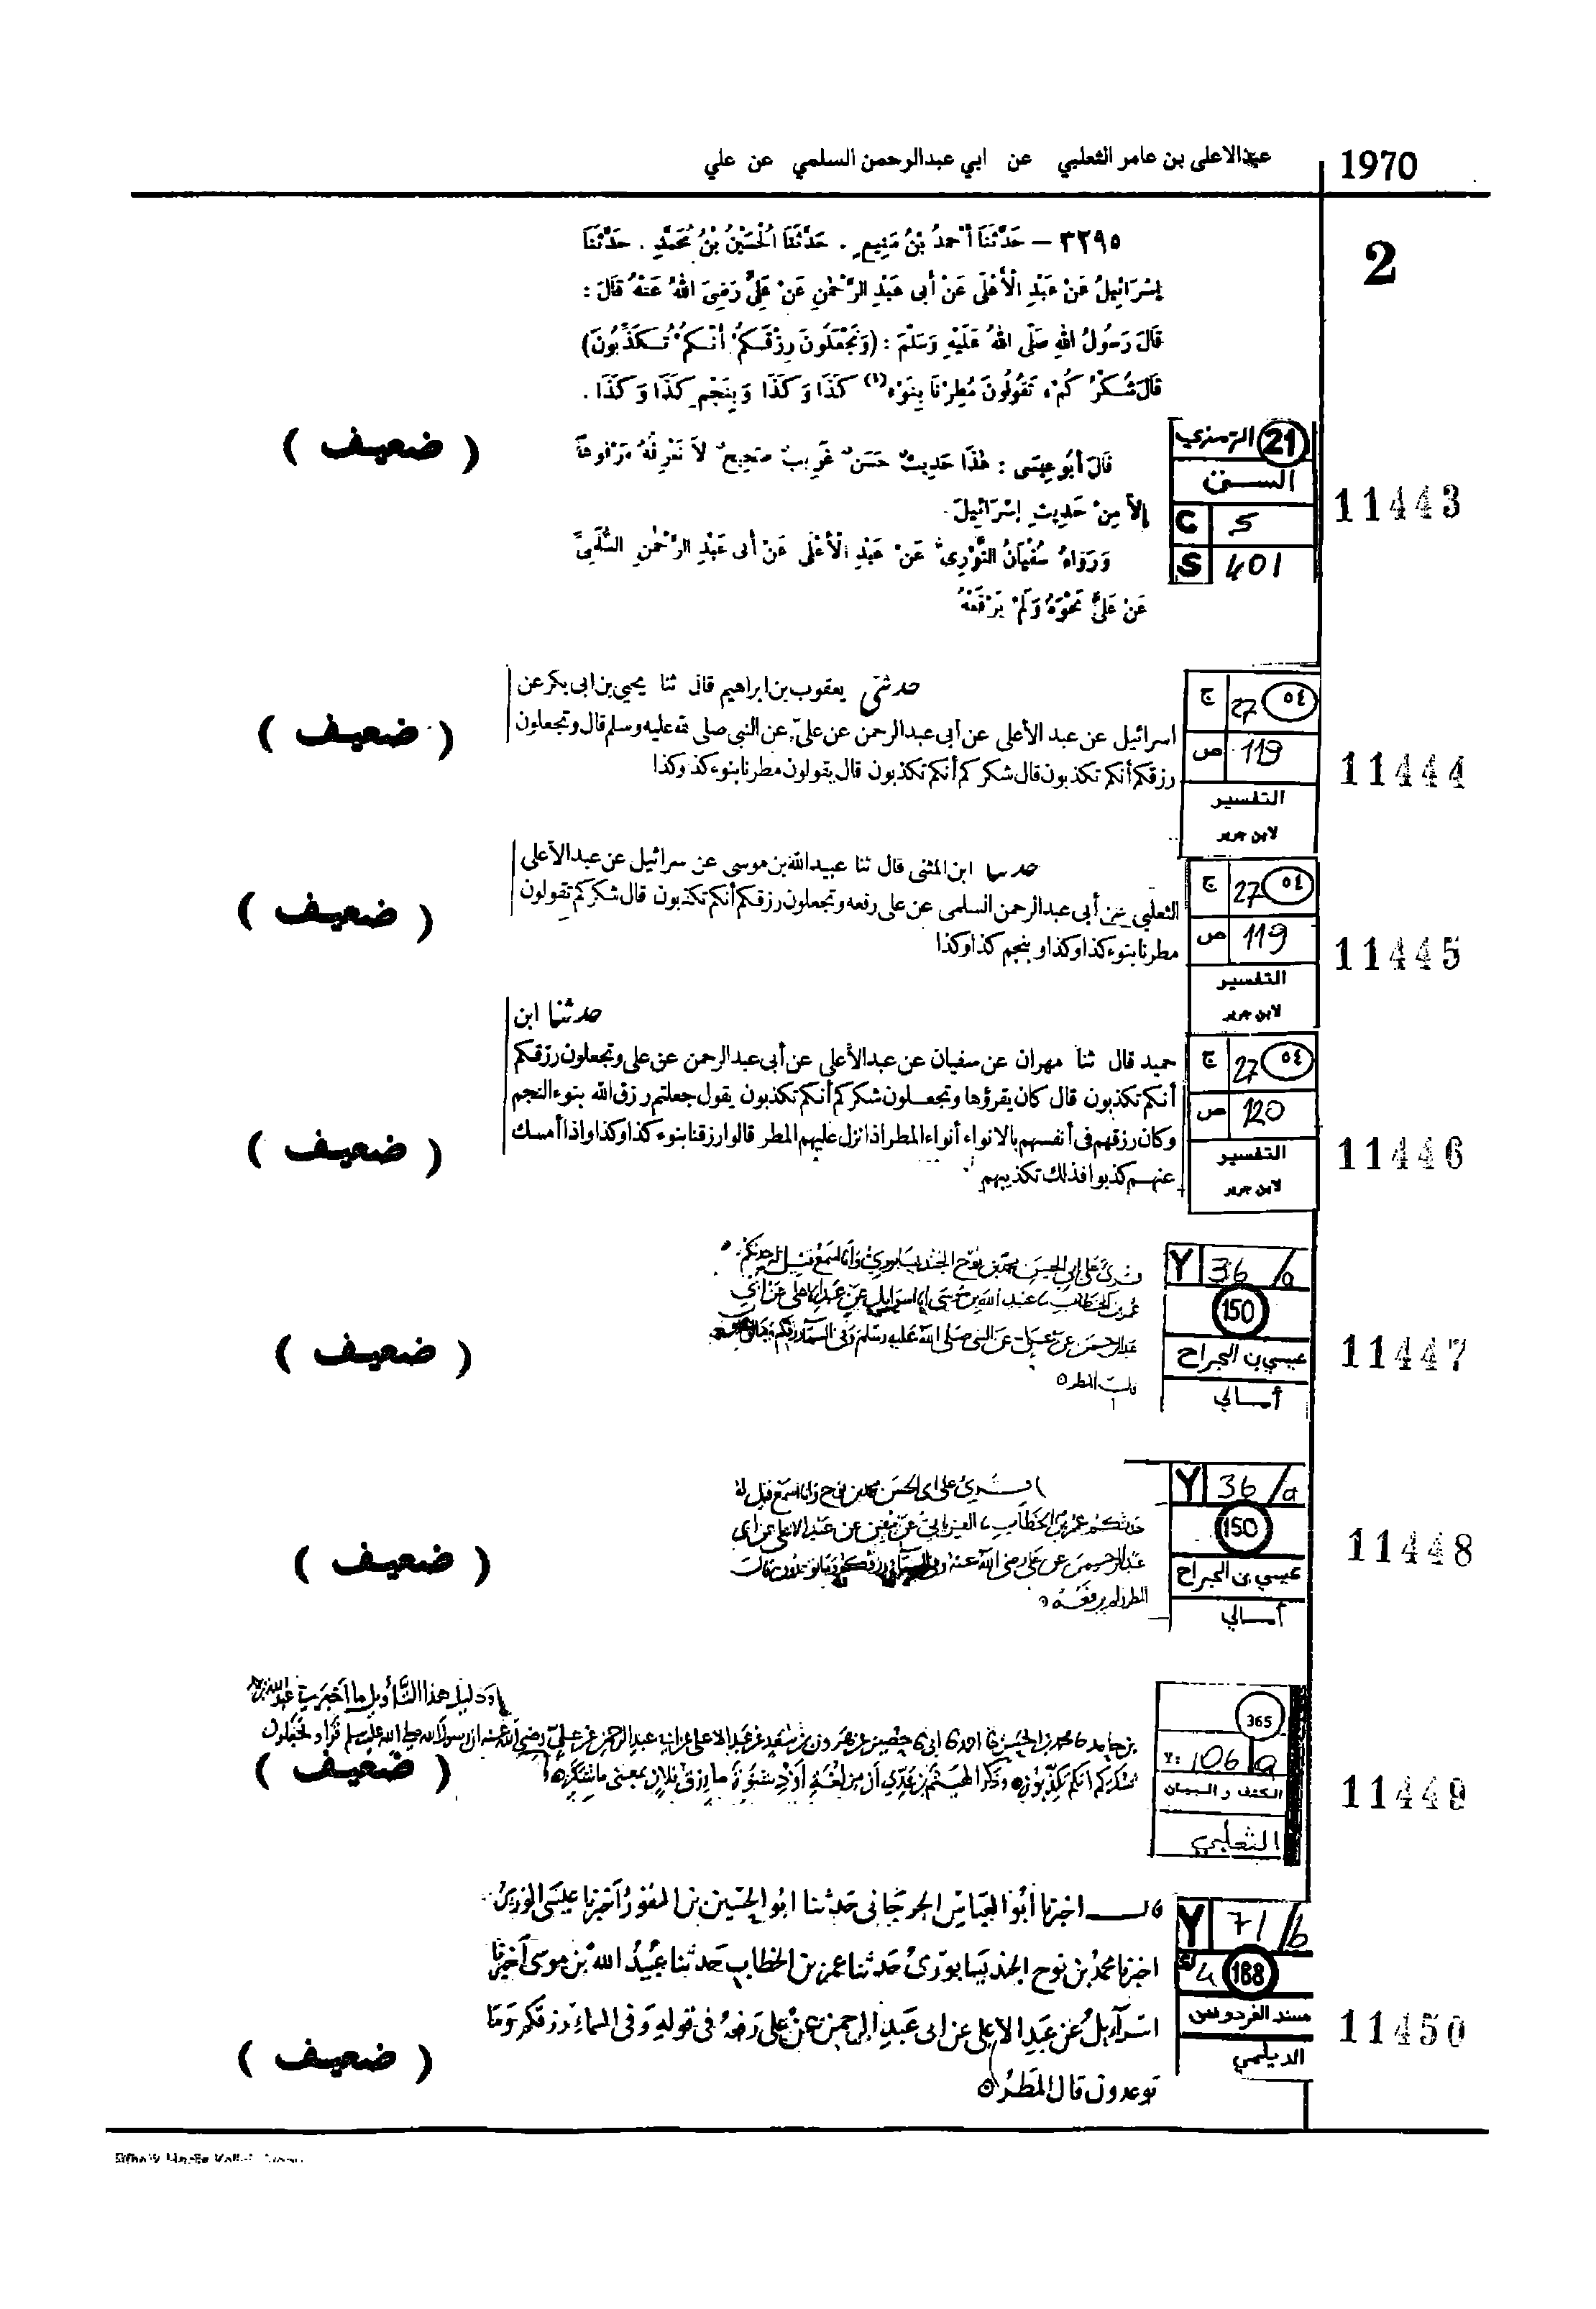 1970
عبدالاعلى بن عامر الثعلبي عن ابي عبدالرحمن السلمي عن علي
2
٣٢٩٥ – حَدَّثَنَا أَحْمَدُ بْنُ مَنِيعٍ . حَدَّثَنَا الْحُسَيْنُ بْنُ مُحَمَّدٍ . حَدَّثَنَا
إِسْرَائِيلُ عَنْ عَبْدِ الْأَعْلَى عَنْ أَبِى عَبْدِ الرَّحْمٰنِ عَنْ عَلِىٍّ رَضِىَ اللهُ عَنْهُ قَالَ :
قَالَ رَسُولُ اللهِ صَلَّى اللهُ عَلَيْهِ وَسَلَّمَ : (وَتَجْعَلُونَ رِزْقَكُمْ أَنَّكُمْ تُكَذِّبُونَ)
قَالَ شُكْرُكُمْ ، تَقُولُونَ مُطِرْنَا بِنَوْءِ (١) كَذَا وَكَذَا وَبِنَجْمِ كَذَا وَكَذَا .
قَالَ أَبُو عِيسَى : هٰذَا حَدِيثٌ حَسَنٌ غَرِيبٌ صَحِيحٌ لاَ نَعْرِفُهُ مَرْفُوعًا
إِلاَّ مِنْ حَدِيثِ إِسْرَائِيلَ .
وَرَوَاهُ سُفْيَانُ الثَّوْرِىُّ عَنْ عَبْدِ الْأَعْلَى عَنْ أَبِى عَبْدِ الرَّحْمٰنِ السُّلَمِىِّ
عَنْ عَلِىٍّ نَحْوَهُ وَلَمْ يَرْفَعْهُ
( ضعيف )
21 الترمذي
السنن
C 5
S 401
11443
حدثنى يعقوب بن ابراهيم قال ثنا يحيى بن ابى بكر عن
اسرائيل عن عبد الأعلى عن أبى عبد الرحمن عن علىّ، عن النبى صلى الله عليه وسلم قال وتجعلون
رزقكم أنكم تكذبون قال شكركم أنكم تكذبون قال يقولون مطرنا بنوء كذا وكذا
( ضعيف )
٥٤ 27 ج
119 ص
التفسير
لابن جرير
11444
حدثنا ابن المثنى قال ثنا عبيد الله بن موسى عن اسرائيل عن عبد الأعلى
الثعلبى عن أبى عبد الرحمن السلمى عن على رفعه وتجعلون رزقكم أنكم تكذبون قال شكركم تقولون
مطرنا بنوء كذا وكذا وبنجم كذا وكذا
( ضعيف )
٥٤ 27 ج
119 ص
التفسير
لابن جرير
11445
حدثنا ابن
حميد قال ثنا مهران عن سفيان عن عبد الأعلى عن أبى عبد الرحمن عن على وتجعلون رزقكم
أنكم تكذبون قال كان يقرؤها وتجعلون شكركم أنكم تكذبون يقول جعلتم رزق الله بنوء النجم
وكان رزقهم فى أنفسهم بالانواء أنواء المطر اذا نزل عليهم المطر قالوا رزقنا بنوء كذا وكذا واذا أمسك
عنهم كذبوا فذلك تكذيبهم
( ضعيف )
٥٤ 27 ج
120 ص
التفسير
لابن جرير
11446
قرئ على ابي الحسن محمد بن نوح الجنديسابوري وأنا أسمع قيل له حدثكم
عمر بن الخطاب نا عبيد الله بن موسى انا اسرائيل عن عبد الاعلى عن ابي
عبد الرحمن عن علي عن النبي صلى الله عليه وسلم وفي السماء رزقكم وما
قال المطر
( ضعيف )
Y 36/a
150
عيسي بن الجراح
أمالي
11447
قرئ على ابي الحسن محمد بن نوح وانا اسمع قيل له
حدثكم عمر بن الخطاب نا الفريابي عن سفين عن عبد الاعلى عن ابي
عبد الرحمن عن علي رضي الله عنه وفي السماء رزقكم وما توعدون قال
المطر ولم يرفعه
( ضعيف )
Y 36/a
150
عيسي بن الجراح
أمالي
11448
ودليل هذا التأويل ما اخبرني عبد الله
بن حامد محمد بن الحسين احمد ابى حصين عن هرون بن سعيد عن عبد الاعلى عن ابي عبد الرحمن عن علي رضي الله عنه ان رسول الله صلى الله عليه وسلم قرأ وتجعلون
شكركم انكم تكذبون وذكر الهيثم بن عدي أن من لغة أزد شنوءة ما رزق فلان بمعنى ما شكر
( ضعيف )
365
Y: 106/a
الكشف والبيان
الثعلبي
11449
قال اخبرنا أبو العباس الجرجاني حدثنا ابو الحسين بن أخبرنا عيسى الوزير
اخبرنا محمد بن نوح الجنديسابوري حدثنا عمر بن الخطاب حدثنا عبيد الله بن موسى أخبرنا
اسرآءيل عن عبد الاعلى عن ابى عبد الرحمن عن على رفعه فى قوله وفى السماء رزقكم وما
توعدون قال المطر
( ضعيف )
Y 71/b
4 188
مسند الفردوس
الديلمي
11450